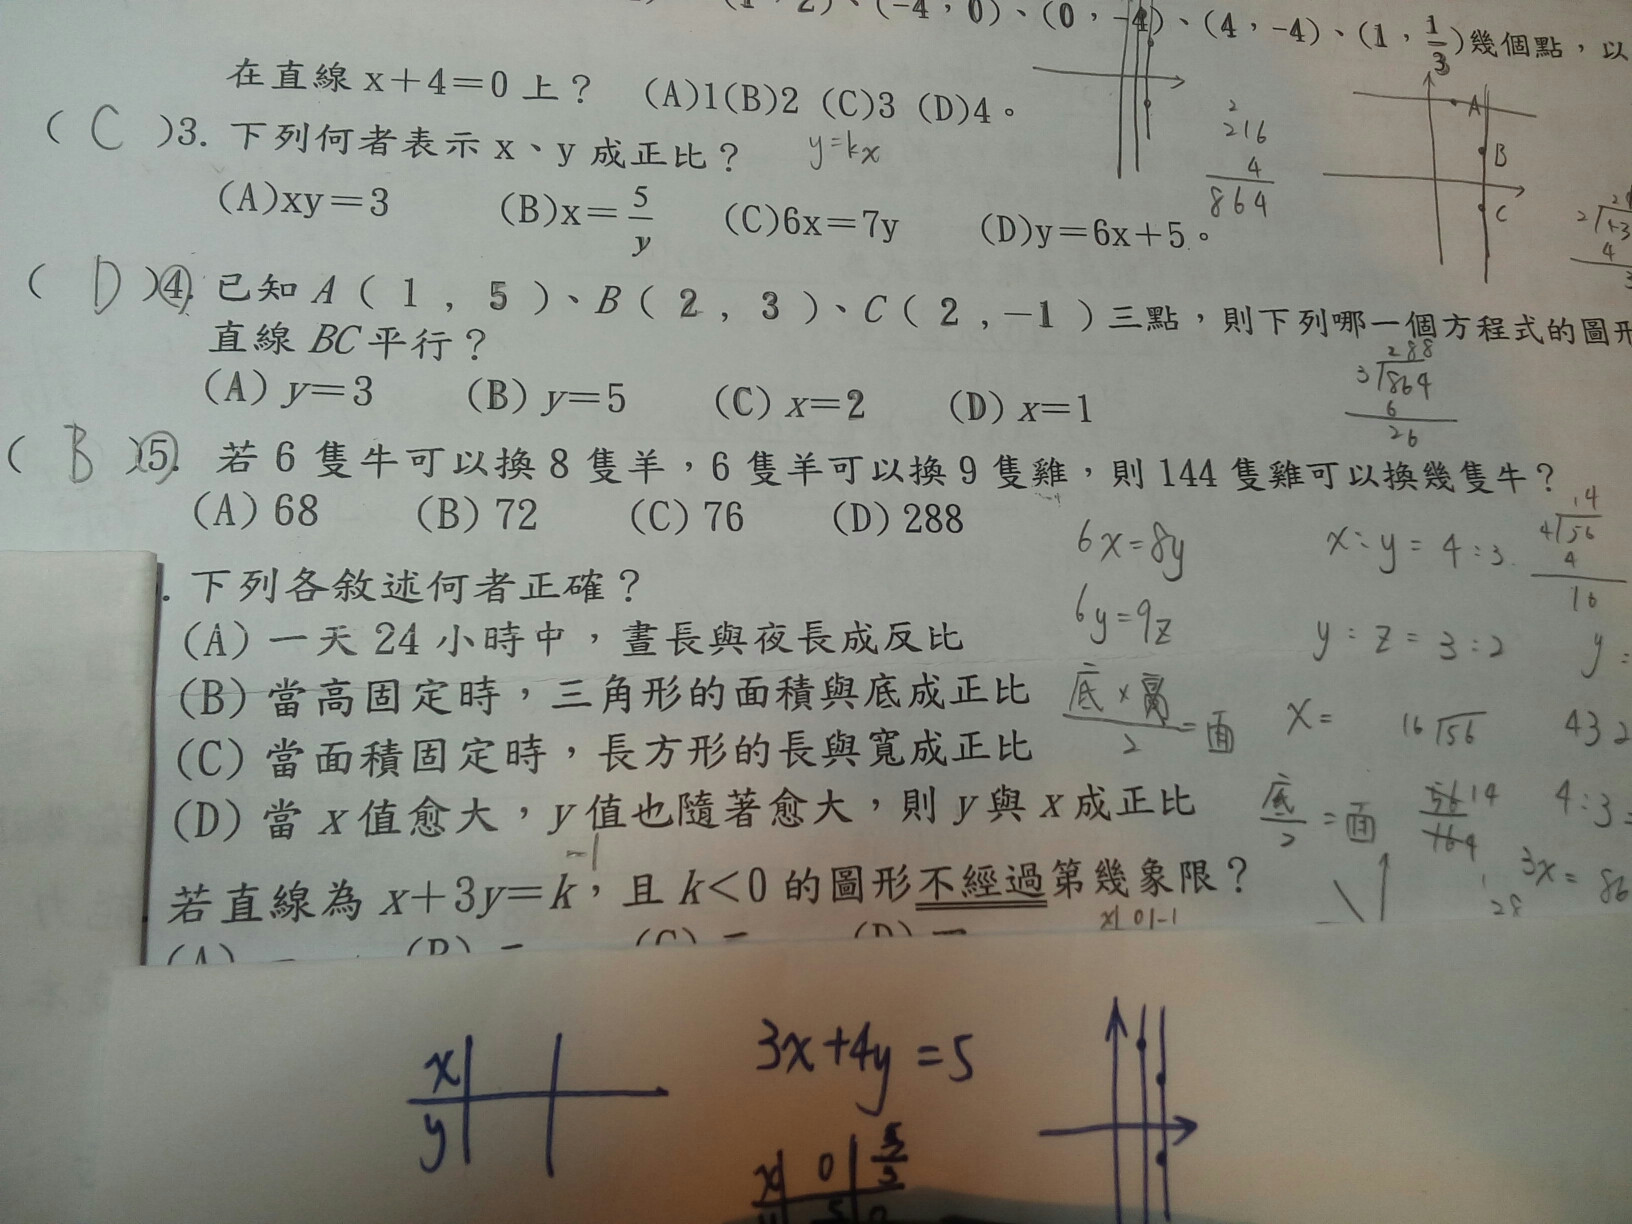 2)、(-4，0)、(0，-4)、(4，-4)、(1，1/3)幾個點，以
在直線 x＋4＝0 上？ (A)1(B)2 (C)3 (D)4。
( C )3. 下列何者表示 x、y 成正比？ y=kx
(A)xy＝3 (B)x＝5/y (C)6x＝7y (D)y＝6x＋5。
2
216
4
864
A
B
C
( D )④. 已知 A ( 1 , 5 )、B ( 2 , 3 )、C ( 2 ,－1 ) 三點，則下列哪一個方程式的圖形
直線 BC 平行？
(A) y＝3 (B) y＝5 (C) x＝2 (D) x＝1
288
3 864
6
26
( B )⑤. 若 6 隻牛可以換 8 隻羊，6 隻羊可以換 9 隻雞，則 144 隻雞可以換幾隻牛？
(A) 68 (B) 72 (C) 76 (D) 288
6x=8y x:y=4:3
14
4 56
4
16
. 下列各敘述何者正確？
6y=9z y:z=3:2 y:
(A) 一天 24 小時中，晝長與夜長成反比
(B) 當高固定時，三角形的面積與底成正比
底×高/2=面 x= 16 56 432
(C) 當面積固定時，長方形的長與寬成正比
(D) 當 x 值愈大，y 值也隨著愈大，則 y 與 x 成正比
底/2=面 14 4:3=
-1
若直線為 x＋3y＝k，且 k<0 的圖形不經過第幾象限？
3x= 86
28
x 0 -1
(A) (B) (C) (D)
x
y
3x+4y=5
x 0 5/3